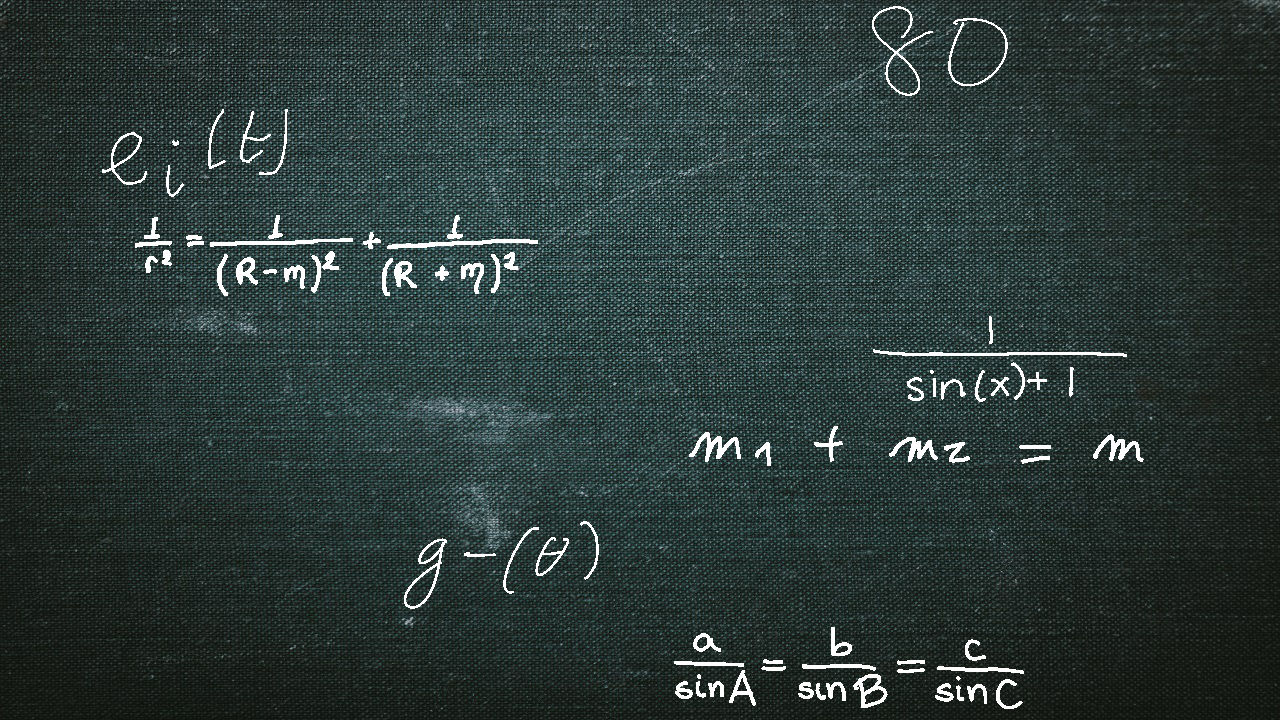 80
e_i(t)
\frac{1}{r^2} = \frac{1}{(R-m)^2} + \frac{1}{(R+m)^2}
\frac{1}{\sin(x)+1}
m_1 + m_2 = m
g-(θ)
\frac{a}{\sin A} = \frac{b}{\sin B} = \frac{c}{\sin C}